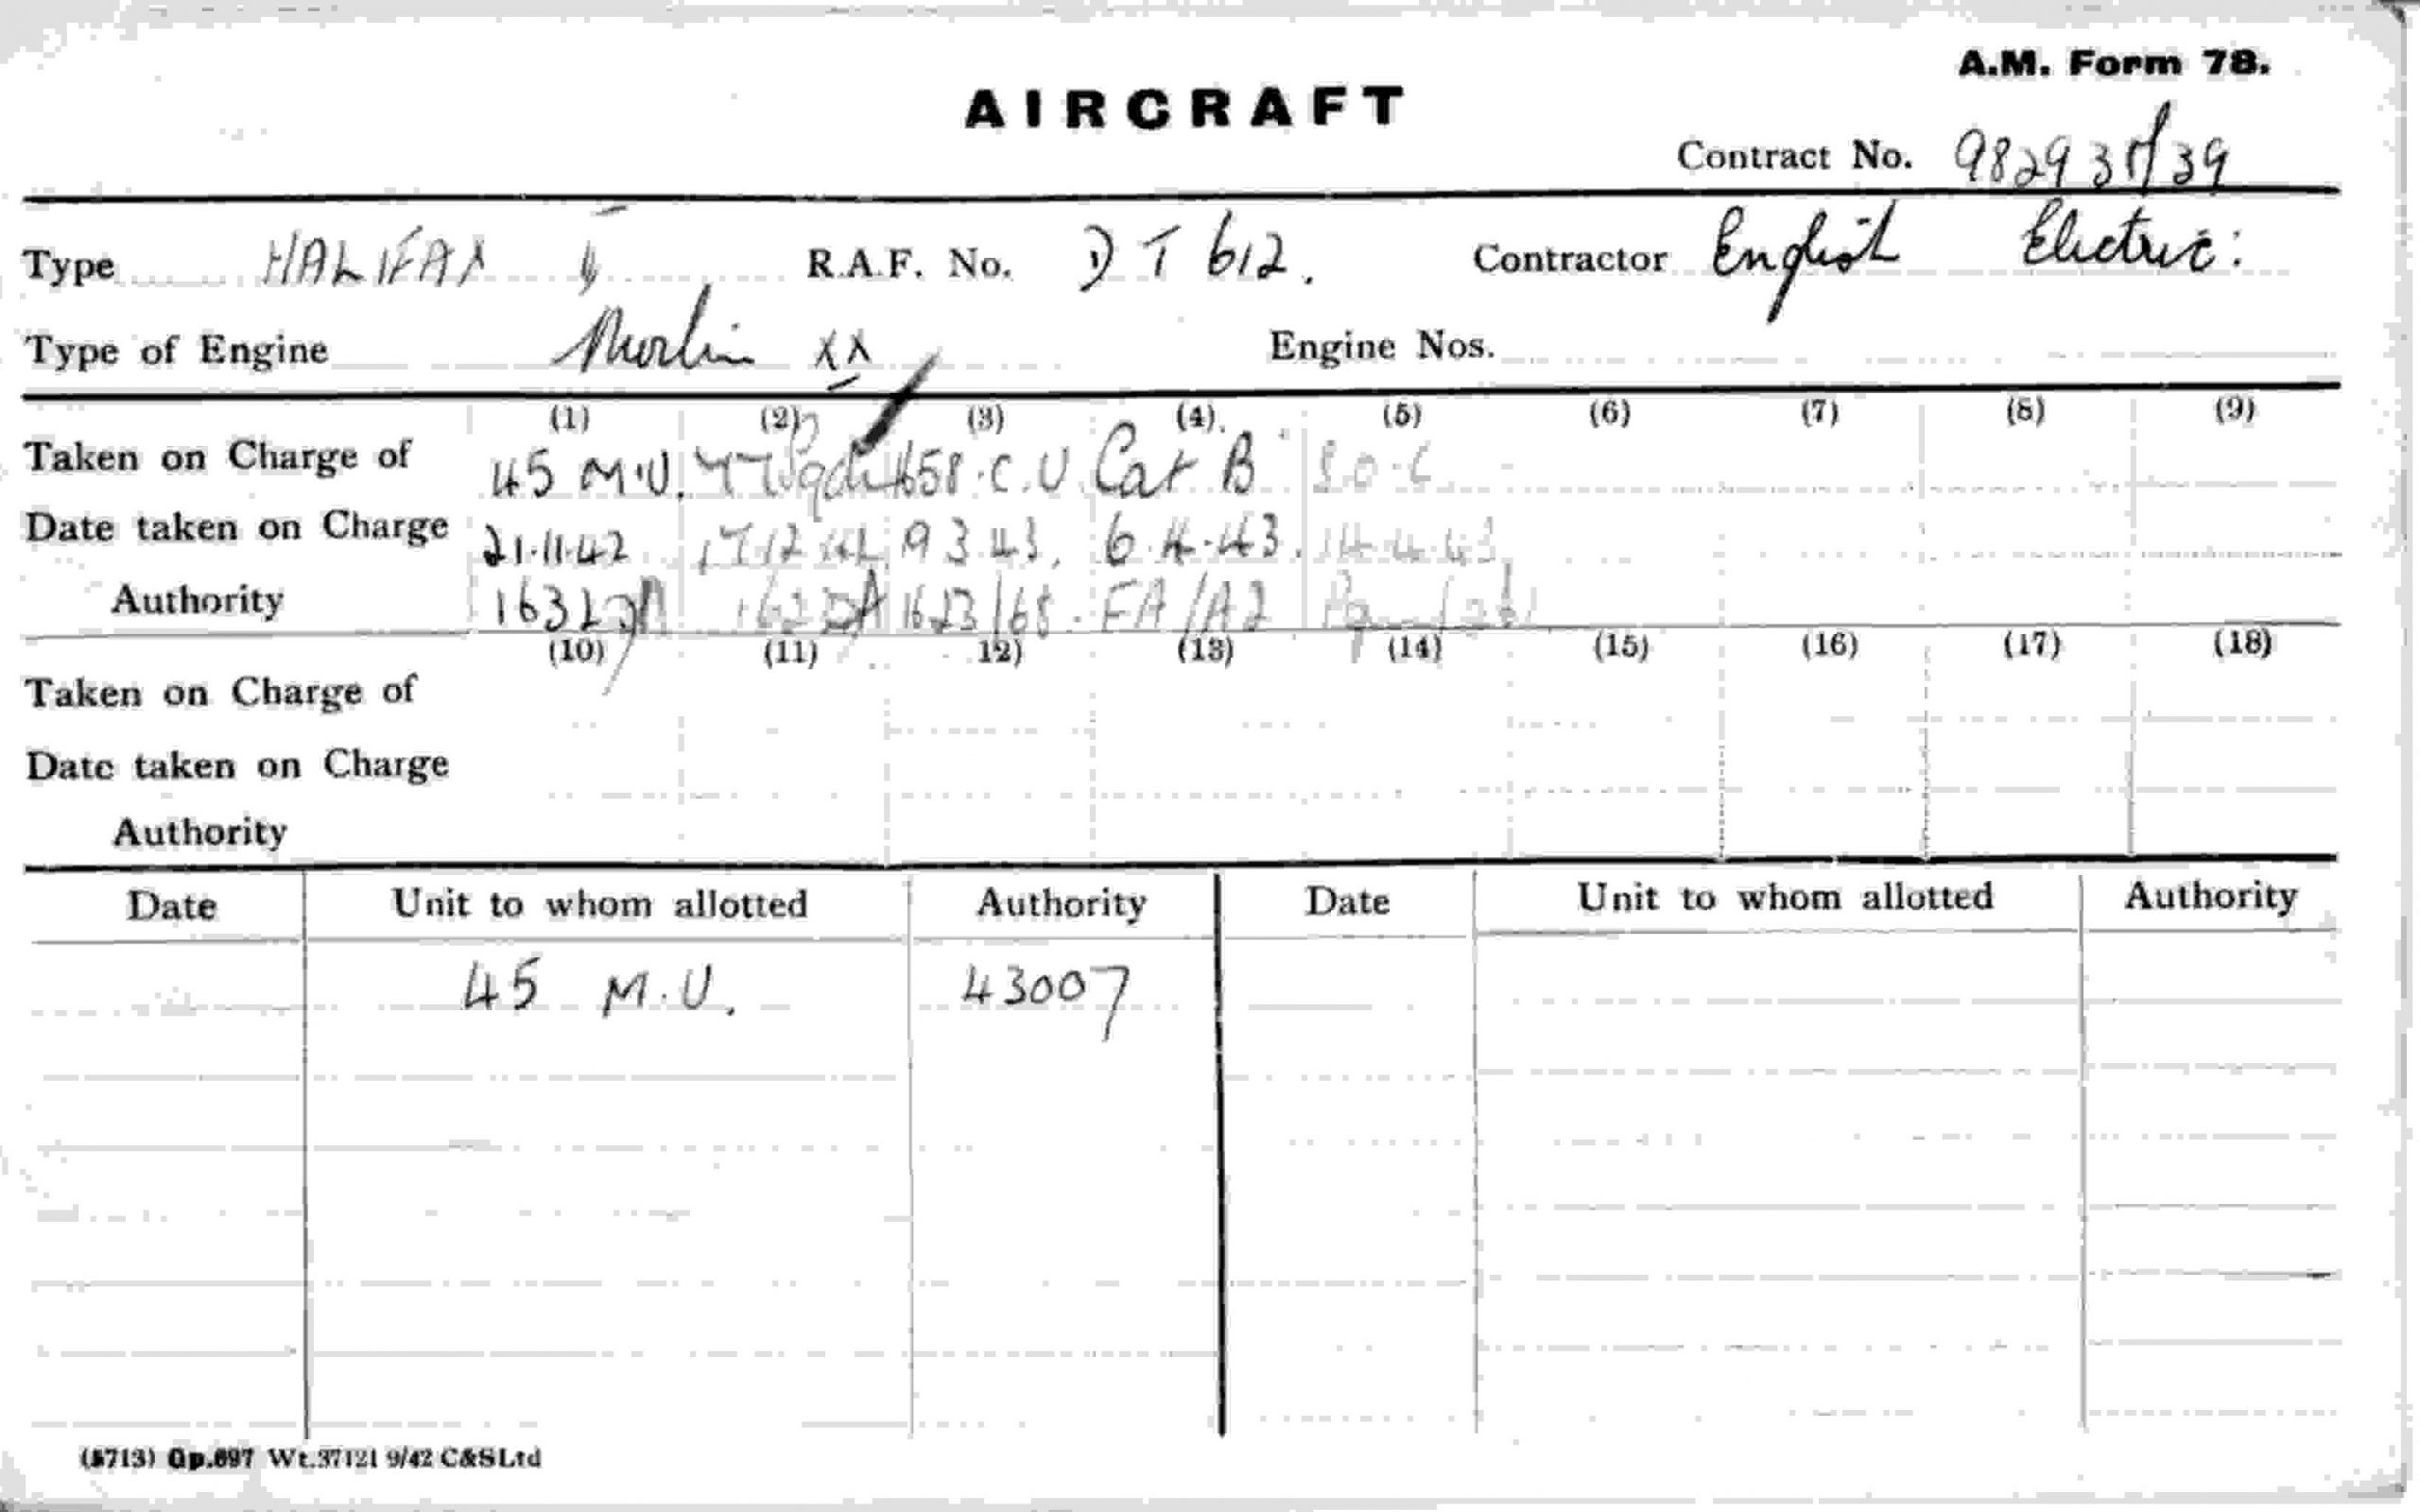 A.M. Form 78.
AIRCRAFT
Contract No.
Type HALIFAX R.A.F. No. DT 612. Contractor English Electric:
Type of Engine Merlin XX Engine Nos.
(1) (2) (3) (4). (5) (6) (7) (8) (9)
Taken on Charge of 45 M.U. 77 Sqdn 1658.C.U Cat B S.O.C
Date taken on Charge 21.11.42 17 12 42 9 3 43. 6.4.43. 14 4 43
Authority FA/A2
(10) (11) 12) (13) (14) (15) (16) (17) (18)
Taken on Charge of
Date taken on Charge
Authority
Date Unit to whom allotted Authority Date Unit to whom allotted Authority
45 M.U. 43007
(8713) Gp.697 Wt.37121 9/42 C&S Ltd